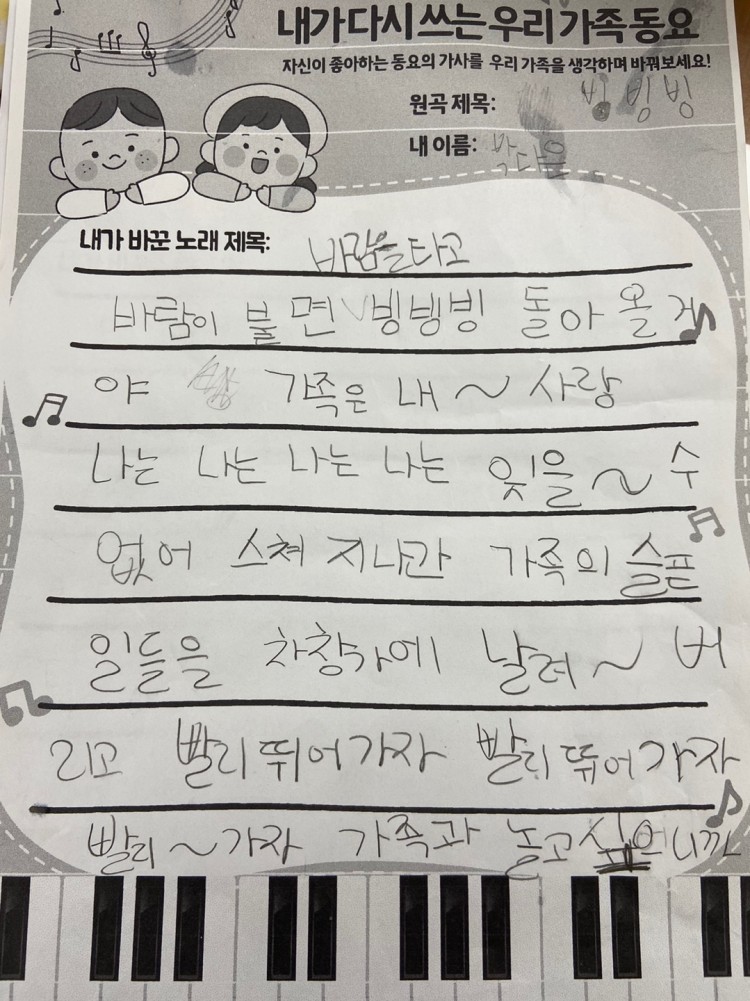 내가 다시 쓰는 우리 가족 동요
자신이 좋아하는 동요의 가사를 우리 가족을 생각하며 바꿔보세요!
원곡 제목: 빙 빙 빙
내 이름: 박다율
내가 바꾼 노래 제목: 바람을 타고
바람이 불 면 빙빙빙 돌아 올 거
야 가족은 내 ~ 사랑
나는 나는 나는 나는 잊을 ~ 수
없어 스쳐 지나간 가족의 슬픈
일들을 차창가에 날려 ~ 버
리고 빨리 뛰어가자 빨리 뛰어가자
빨리 ~ 가자 가족과 놀고 싶으니까